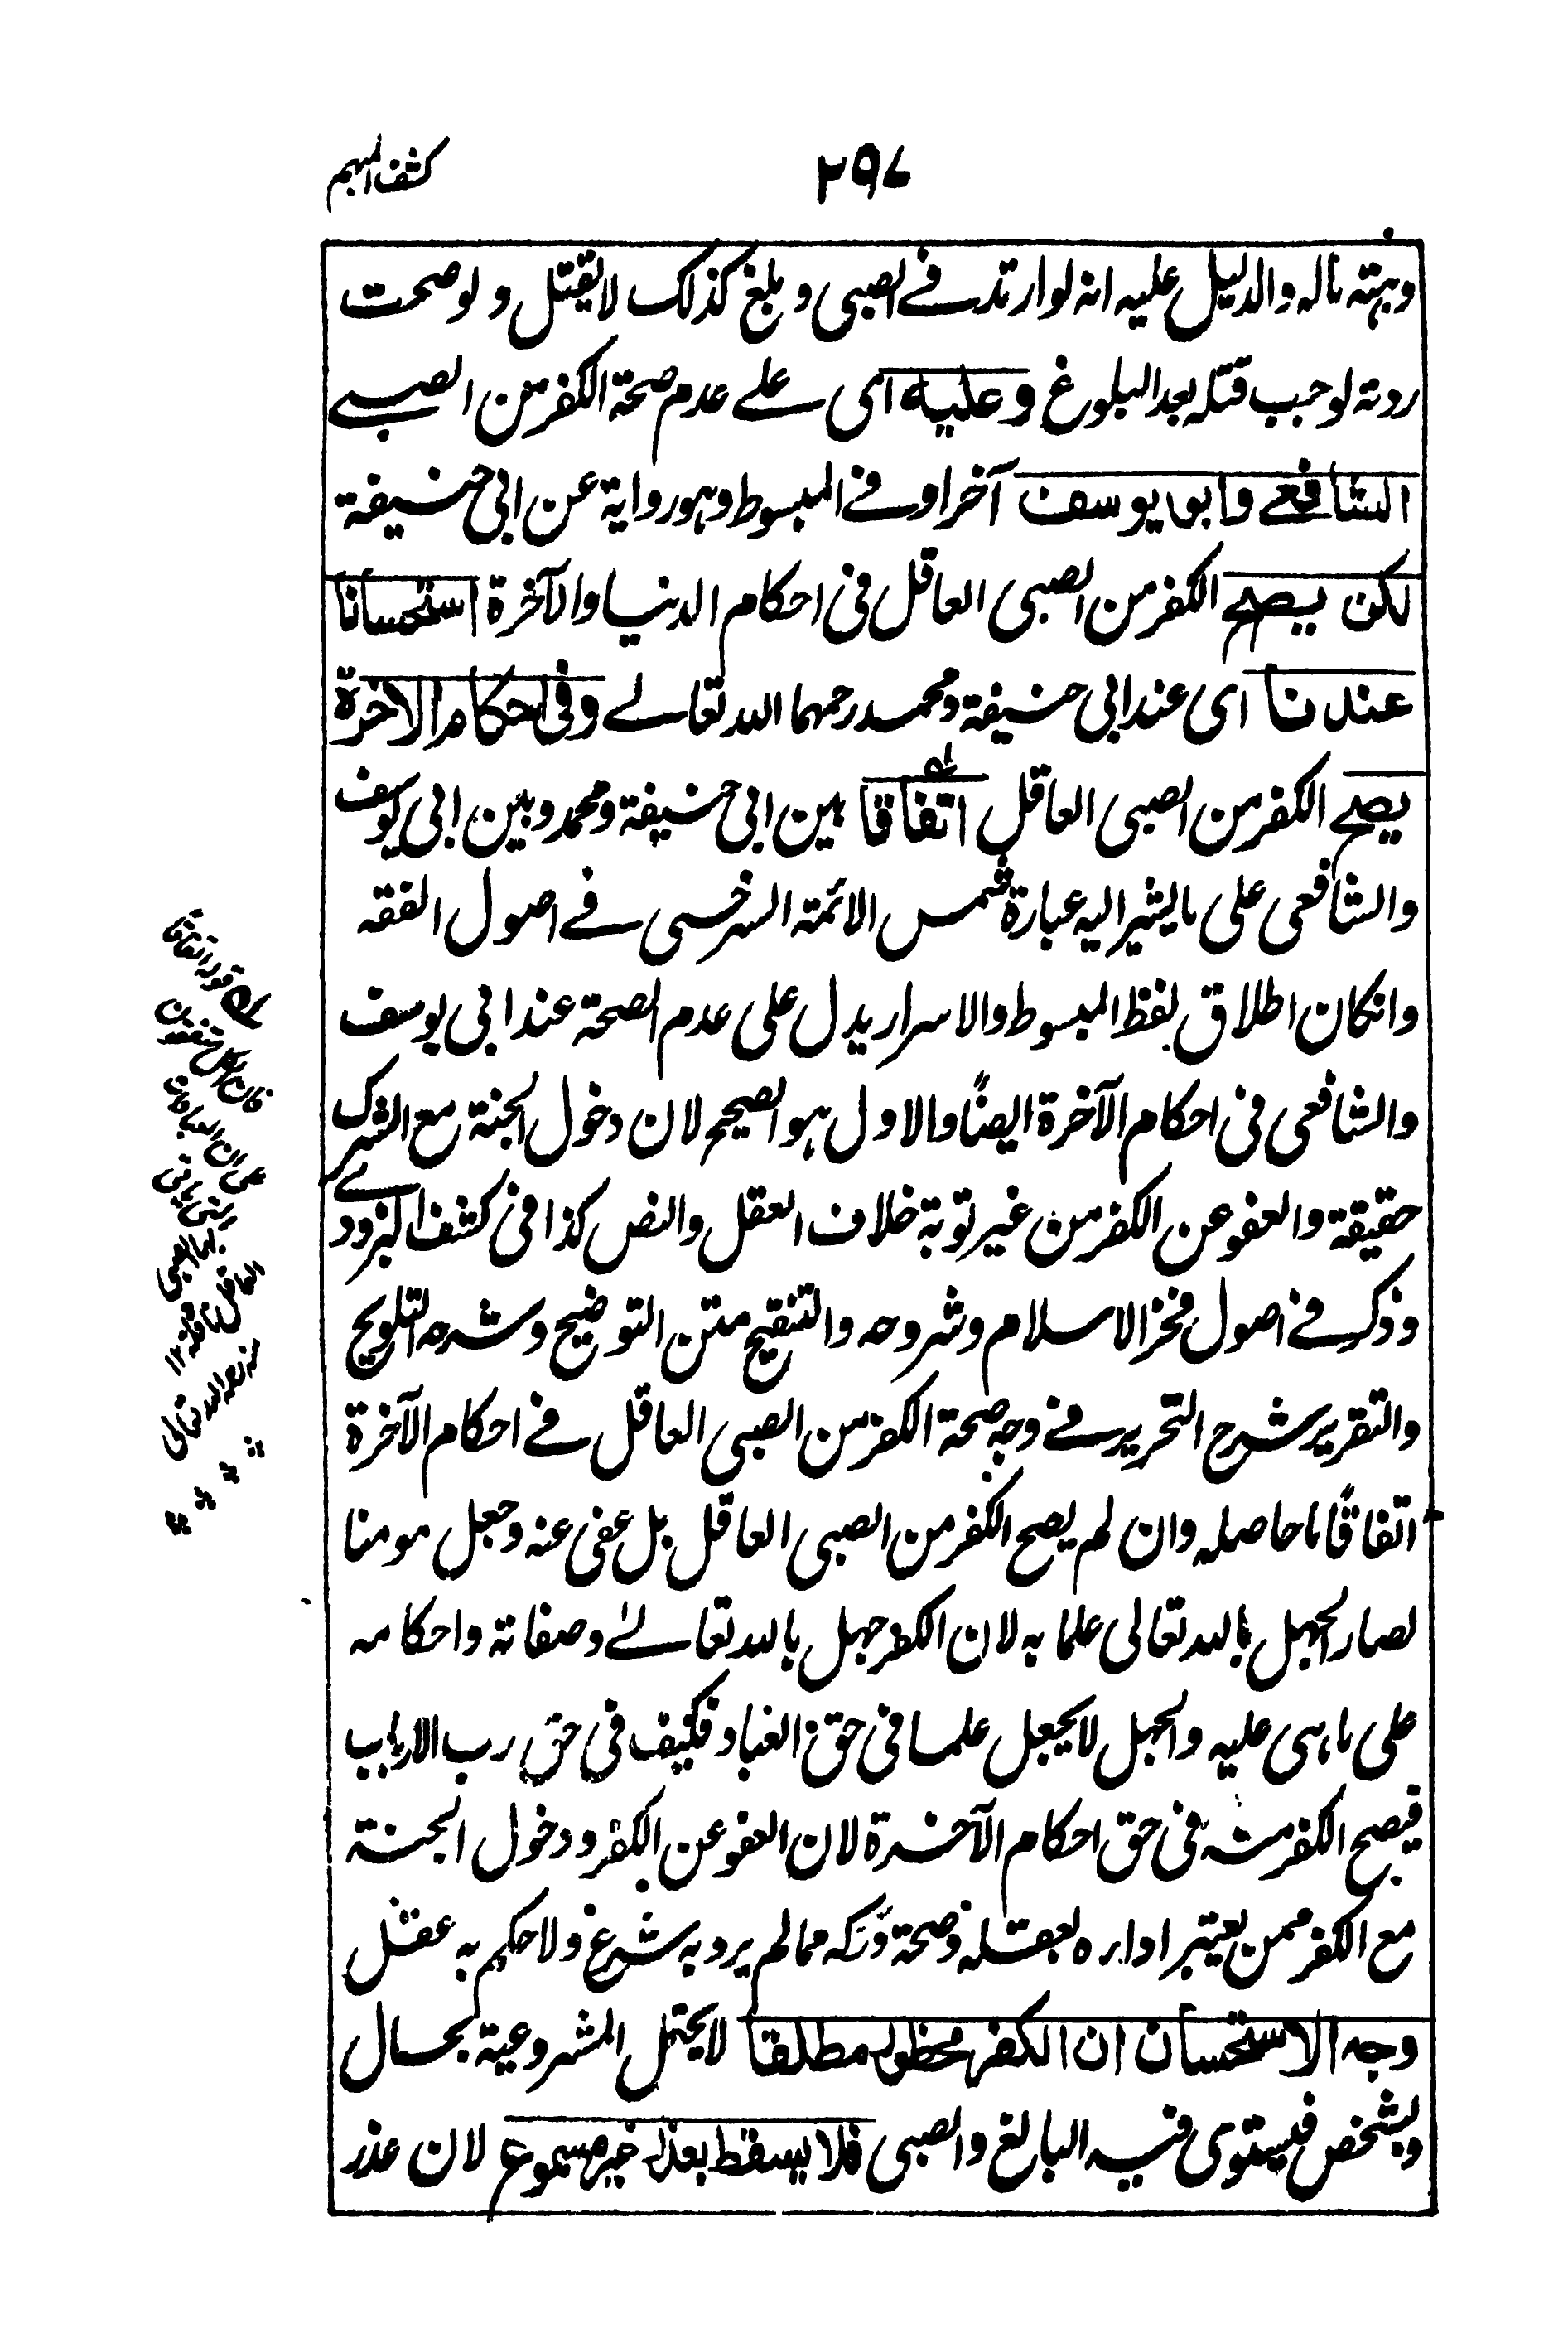 ٢٩٧
كشف المبهم
وهبته ماله والدليل عليه انه لو ارتد في الصبى وبلغ كذلك لا يقتل ولو صحت
ردته لوجب قتله بعد البلوغ وعليه اى على عدم صحة الكفر من الصبى
الشافعى وابو يوسف آخرا وفي المبسوط وهو رواية عن ابى حنيفة
لكن يصح الكفر من الصبى العاقل فى احكام الدنيا والآخرة استحسانا
عندنا اى عند ابى حنيفة ومحمد رحمهما الله تعالى وفى احكام الآخرة
يصح الكفر من الصبى العاقل اتفاقا بين ابى حنيفة ومحمد وبين ابى يوسف
والشافعى على ما يشير اليه عبارة شمس الائمة السرخسى في اصول الفقه
وانكان اطلاق لفظ المبسوط والاسرار يدل على عدم الصحة عند ابى يوسف
والشافعى فى احكام الآخرة ايضًا والاول هو الصحيح لان دخول الجنة مع الشرك
حقيقة والعفو عن الكفر من غير توبة خلاف العقل والنص كذا فى كشف البزدوى
وذكر في اصول فخر الاسلام وشروحه والتنقيح متن التوضيح وشرحه التلويح
والتقرير شرح التحرير في وجه صحة الكفر من الصبى العاقل في احكام الآخرة
اتفاقًا ما حاصله وان لم يصح الكفر من الصبى العاقل بل عفى عنه وجعل مومنا
لصار الجهل بالله تعالى علما به لان الكفر جهل بالله تعالى وصفاته واحكامه
على ما هى عليه والجهل لا يجعل علما فى حق العباد فكيف فى حق رب الارباب
فيصح الكفر منه فى حق احكام الآخرة لان العفو عن الكفر ودخول الجنة
مع الكفر ممن يعتبر اداءه لعقله وصحة دركه مما لم يرد به شرع ولا حكم به عقل
وجه الاستحسان ان الكفر محظور مطلقا لا يحتمل المشروعية بحال
وبشخص فيستوى فيه البالغ والصبى فلا يسقط بعذر غير مسموع لان عذر
قوله اتفاقا
فان الكل متفقون
على ان
الصبى
العاقل
رحمه الله تعالى